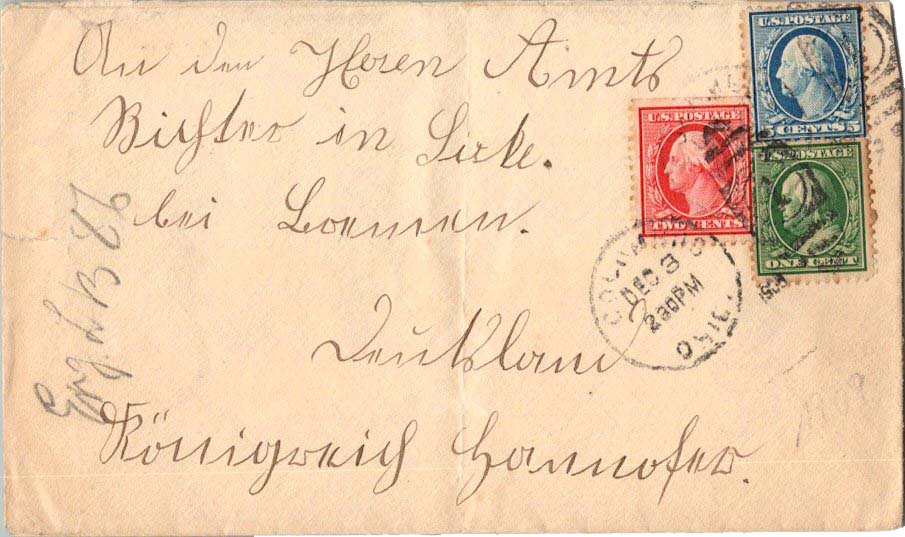 An den Heren Amts
Richter in Sirke.
bei Bremen.
Deutslam
Königreich Hannofer.
U.S. POSTAGE
5 CENTS 5
U.S. POSTAGE
TWO CENTS
U.S. POSTAGE
ONE
COLUMBUS
DEC 3
2 30PM
OHIO
1909